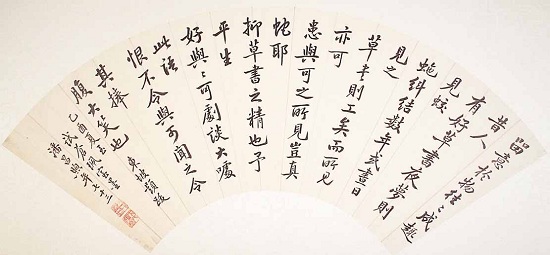 留意於物往〻成趣
昔人
有好草書夜夢則
見蛟
蛇糾結數年或晝日
見之
草書則工矣而所見
亦可
患與可之所見豈真
蛇耶
抑草書之精也予
平生
好與〻可劇談大噱
此語
恨不令與可聞之令
其捧
腹大笑也 東坡題跋
乙酉夏試蒼佩室墨
潘昌煦年七十三